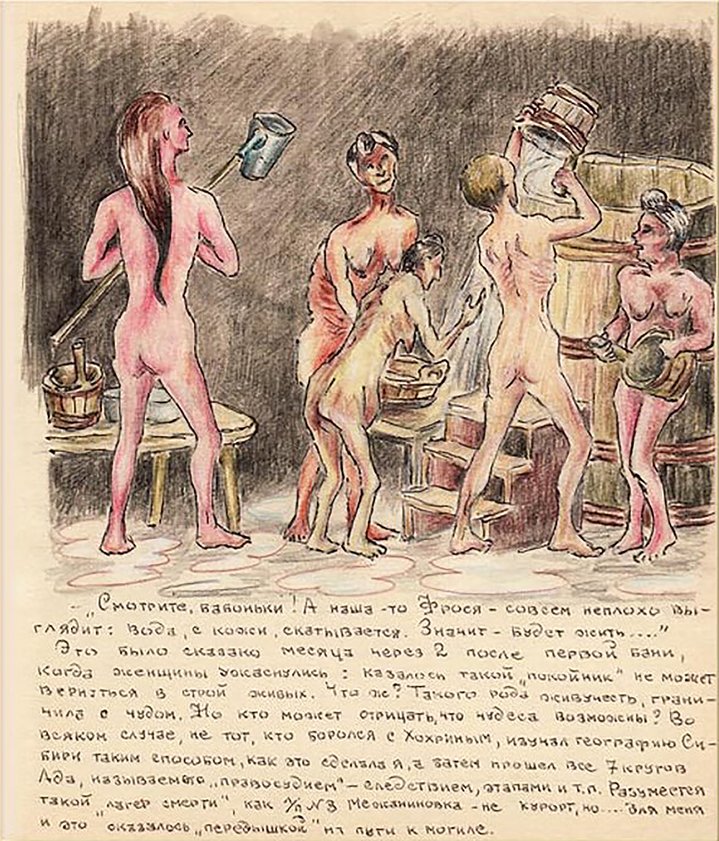 - „Смотрите, бабоньки! А наша-то Фрося - совсем неплохо вы-
глядит: вода, с кожи, скатывается. Значит - будет жить....”
Это было сказано месяца через 2 после первой бани,
когда женщины ужаснулись: казалось такой „покойник” не может
вернуться в строй живых. Что ж? Такого рода живучесть, грани-
чила с чудом. Но кто может отрицать, что чудеса возможны? Во
всяком случае, не тот, кто боролся с Хохриным, изучал географию Си-
бири таким способом, как это сделала я, а затем прошел все 7 кругов
Ада, называемого „правосудием” - следствием, этапами и т.п. Разумеется
такой „лагер смерти”, как л/п №3 Межаниновка - не курорт, но.... для меня
и это оказалось „передышкой” на пути к могиле.